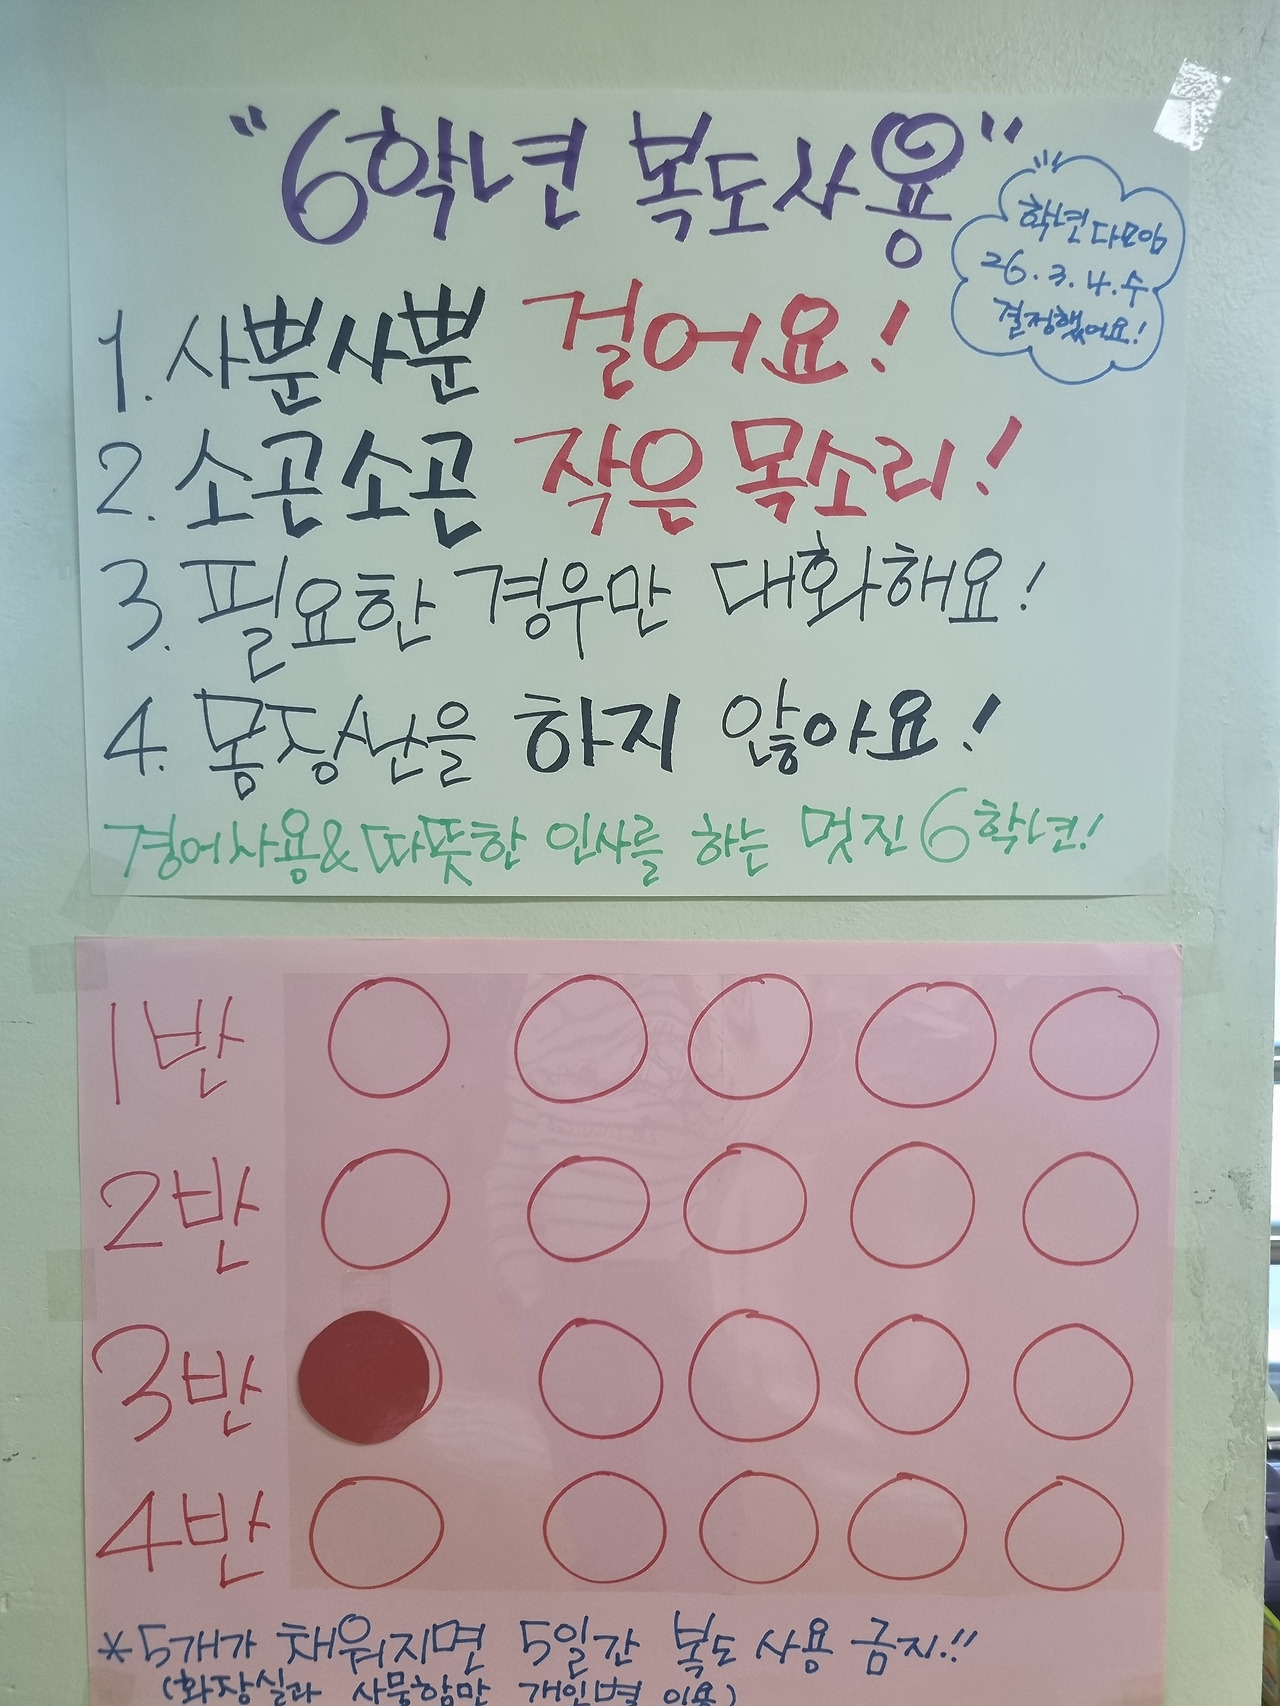 "6학년 복도사용"
학년다모임
26.3.4.수
결정했어요!
1. 사뿐사뿐 걸어요!
2. 소곤소곤 작은 목소리!
3. 필요한 경우만 대화해요!
4. 몸장난을 하지 않아요!
경어사용&따뜻한 인사를 하는 멋진 6학년!
1반
2반
3반
4반
*5개가 채워지면 5일간 복도 사용 금지!!
(화장실과 사물함만 개인별 이용)